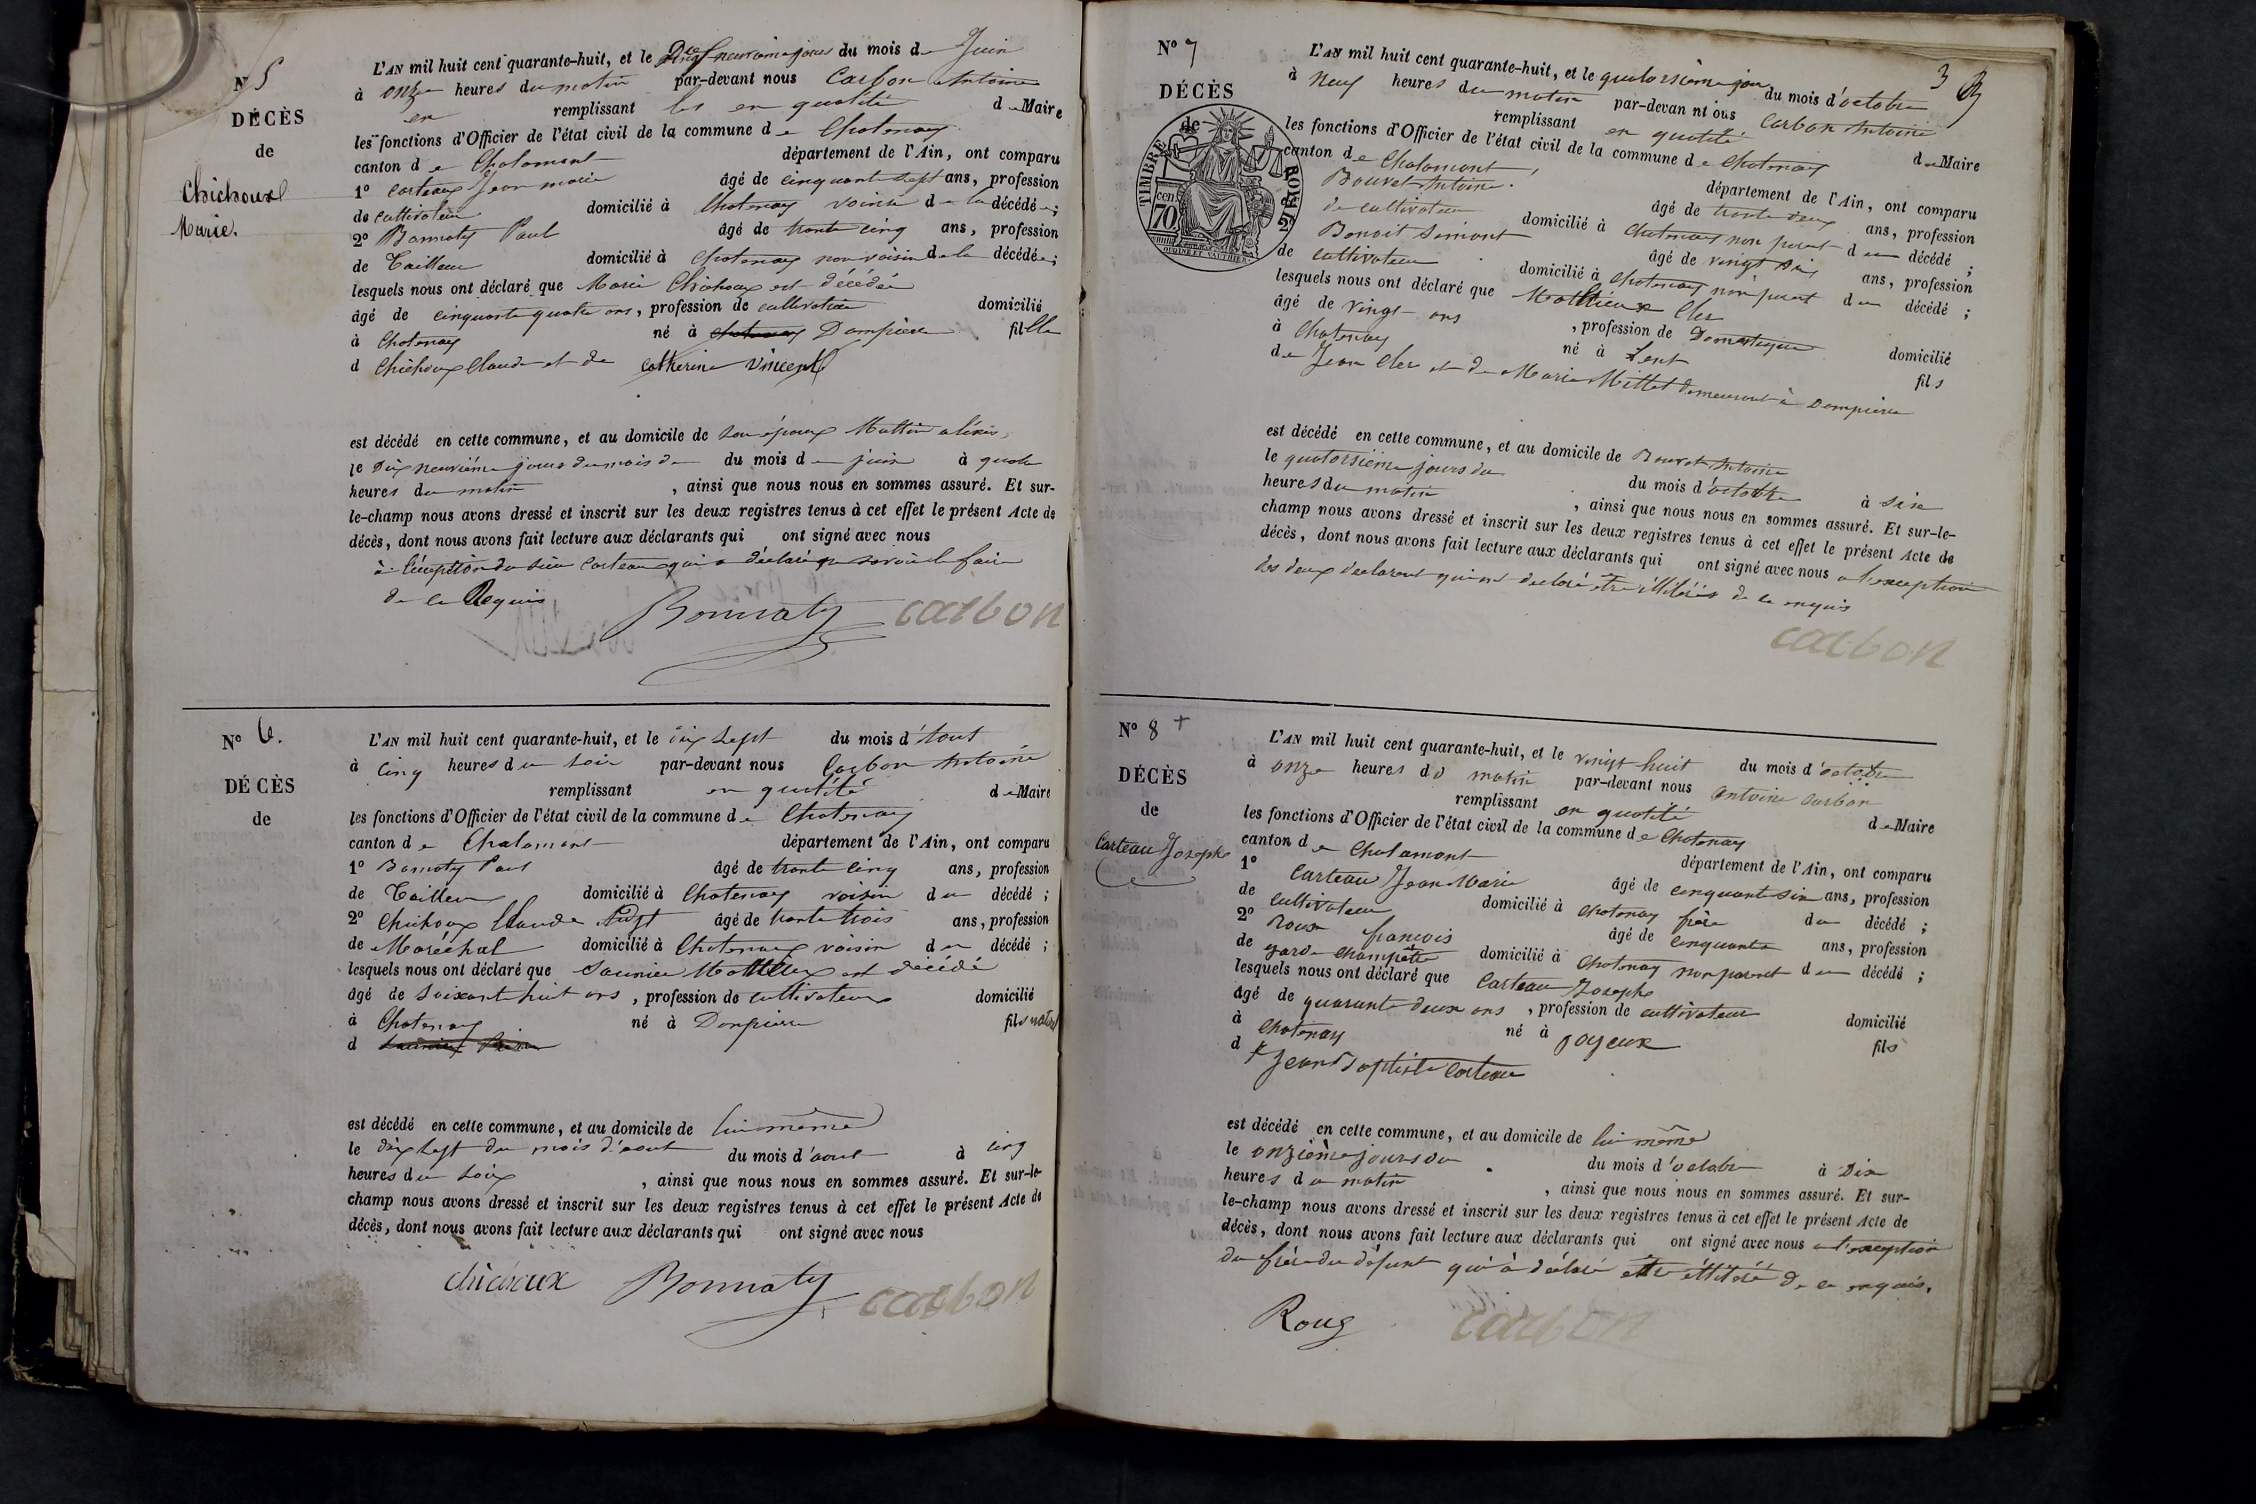 N 5
DÉCÈS
de
Chichoux
Marie.
L'AN mil huit cent quarante-huit, et le Dix neuvième jours du mois de Juin
à onze heures du matin par-devant nous Carbon Antoine
en remplissant les en qualité de Maire
les fonctions d'Officier de l'état civil de la commune de Chatenay
canton de Chalamont département de l'Ain, ont comparu
1º Carteaux Jean marie âgé de cinquant sept ans, profession
de cultivateur domicilié à Chatenay voisin de la décédée;
2º Bonnaty Paul âgé de trente cinq ans, profession
de Tailleur domicilié à Chatenay non voisin de la décédée;
lesquels nous ont déclaré que Marie Chichoux est décédée
âgé de cinquante quatre ans, profession de cultivatrice domicilié
à Chatenay né à Chatenay Dompierre fille
d Chichoux Claude et de Catherine Vincent
est décédé en cette commune, et au domicile de son époux Mattin
le Dix neuvième jours du mois de du mois de juin à quatre
heures du matin , ainsi que nous nous en sommes assuré. Et sur-
le-champ nous avons dressé et inscrit sur les deux registres tenus à cet effet le présent Acte de
décès, dont nous avons fait lecture aux déclarants qui ont signé avec nous
à l'éxception du sieur Carteaux qui a déclaré ne savoir le faire
de ce Requis
Bonnaty carbon
Nº 6.
DÉCÈS
de
L'AN mil huit cent quarante-huit, et le dix sept du mois d'Aout
à cinq heures du soir par-devant nous Carbon Antoine
remplissant en qualité de Maire
les fonctions d'Officier de l'état civil de la commune de Chatenay
canton de Chalamont département de l'Ain, ont comparu
1º Bonnaty Paul âgé de trente cinq ans, profession
de Tailleur domicilié à Chatenay voisin du décédé;
2º Chichoux Claude âgé de trente trois ans, profession
de Maréchal domicilié à Chatenay voisin du décédé;
lesquels nous ont déclaré que Saunier Matthieux est décédé
âgé de Soixante huit ans, profession de cultivateur domicilié
à Chatenay né à Dompierre fils naturel
d
est décédé en cette commune, et au domicile de lui même
le dix sept du mois d'aout du mois d'aout à cinq
heures du soir , ainsi que nous nous en sommes assuré. Et sur-le-
champ nous avons dressé et inscrit sur les deux registres tenus à cet effet le présent Acte de
décès, dont nous avons fait lecture aux déclarants qui ont signé avec nous
chichoux Bonnaty carbon
3
Nº 7
DÉCÈS
de
TIMBRE ROYAL
70 cen
L'AN mil huit cent quarante-huit, et le quatorsième jour du mois d'octobre
à neuf heures du matin par-devan nt ous Carbon Antoine
remplissant en qualité de Maire
les fonctions d'Officier de l'état civil de la commune de Chatenay
canton de Chalamont département de l'Ain, ont comparu
Bouvet Antoine âgé de trente deux ans, profession
de cultivateur domicilié à Chatenay non parent du décédé;
Benoit Simont âgé de vingt six ans, profession
de cultivateur domicilié à Chatenay non parent du décédé;
lesquels nous ont déclaré que Matthieux Cler
âgé de vingt ans , profession de Domestique domicilié
à Chatenay né à Lent fils
de Jean Cler et de Marie Millet demeurant à Dompierre
est décédé en cette commune, et au domicile de Bouvet Antoine
le quatorsième jours du du mois d'octobre à six
heures du matin , ainsi que nous nous en sommes assuré. Et sur-le-
champ nous avons dressé et inscrit sur les deux registres tenus à cet effet le présent Acte de
décès, dont nous avons fait lecture aux déclarants qui ont signé avec nous a l'exception
des deux declarent qui ont declaré être illiterés de ce enquis
carbon
Nº 8 +
DÉCÈS
de
Carteau Joseph
L'AN mil huit cent quarante-huit, et le vingt huit du mois d'octobre
à onze heures du matin par-devant nous Antoine Carbon
remplissant en qualité de Maire
les fonctions d'Officier de l'état civil de la commune de Chatenay
canton de Chalamont département de l'Ain, ont comparu
1º Carteau Jean Marie âgé de cinquant six ans, profession
de cultivateur domicilié à Chatenay frère du décédé;
2º Roux françois âgé de cinquante ans, profession
de garde champêtre domicilié à Chatenay non parent du décédé;
lesquels nous ont déclaré que Carteau Joseph
âgé de quarante deux ans , profession de cultivateur domicilié
à Chatenay né à joyeux fils
d Jean Baptiste Carteau
est décédé en cette commune, et au domicile de lui même
le onzième jours du du mois d'octobre à Dix
heures du matin , ainsi que nous nous en sommes assuré. Et sur-
le-champ nous avons dressé et inscrit sur les deux registres tenus à cet effet le présent Acte de
décès, dont nous avons fait lecture aux déclarants qui ont signé avec nous a l'exception
du frère du défunt qui à déclaré être illitéré de ce enquis.
Roux carbon